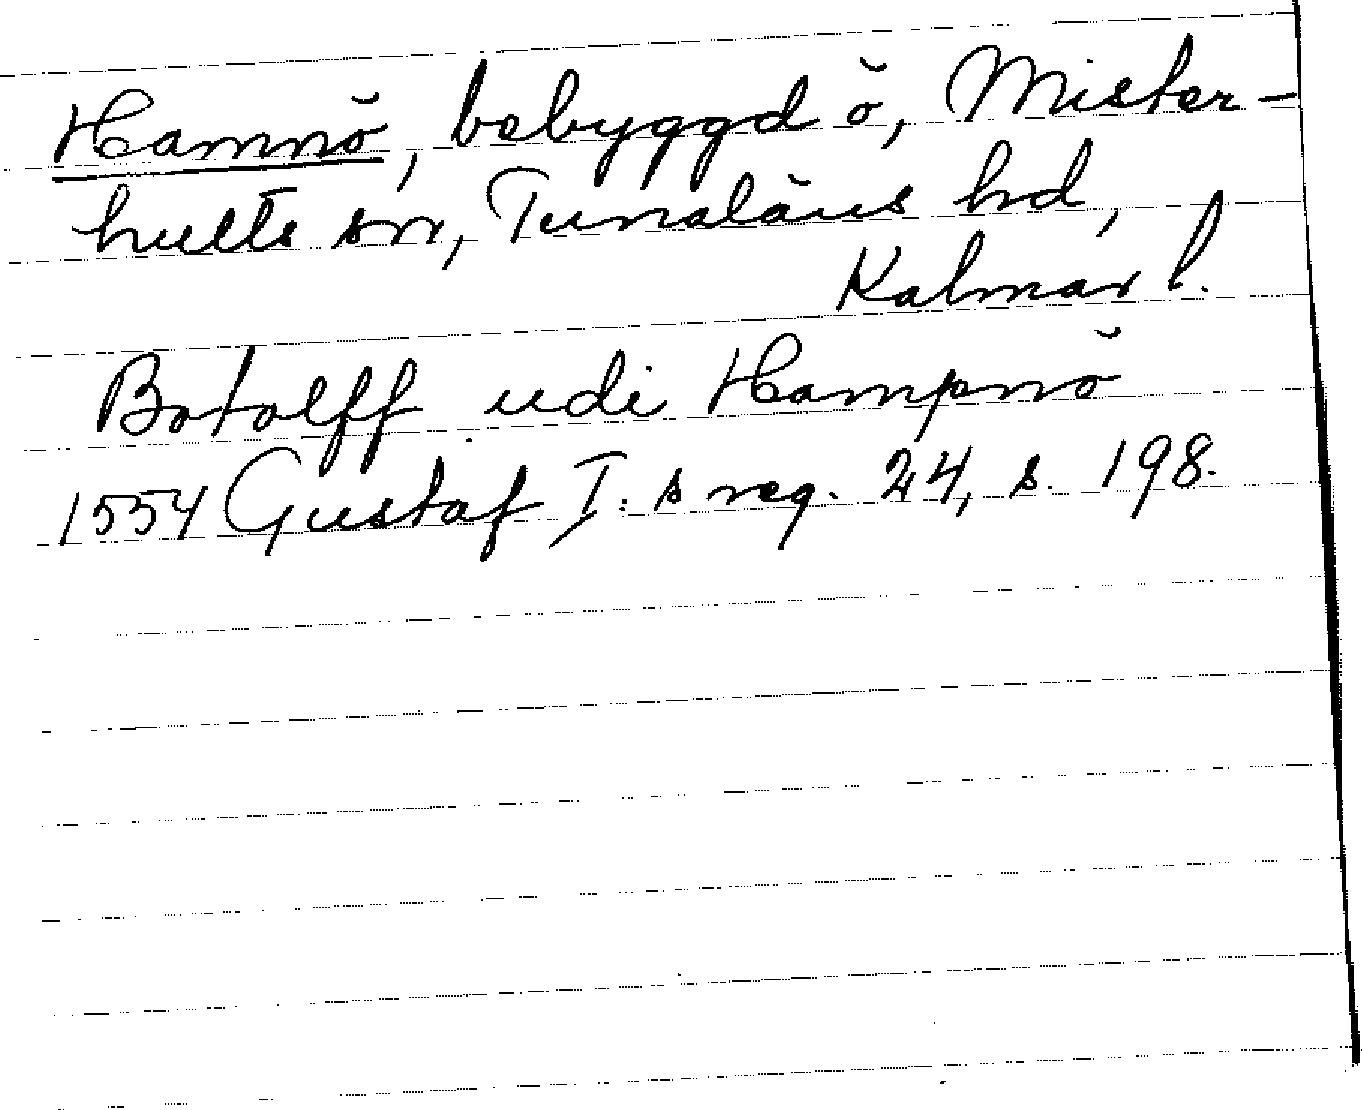 Hamnö, bebyggd ö, Mister-
hults sn, Tunaläns hd,
Kalmar l.
Botolff udi Hampnö
1554 Gustaf I:s reg. 24, s. 198.